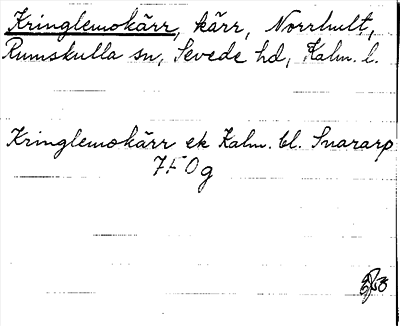 Kringlemokärr, kärr, Norrhult,
Rumskulla sn, Sevede hd, Kalm. l.
Kringlemokärr ek Kalm. bl. Snararp
7F0g